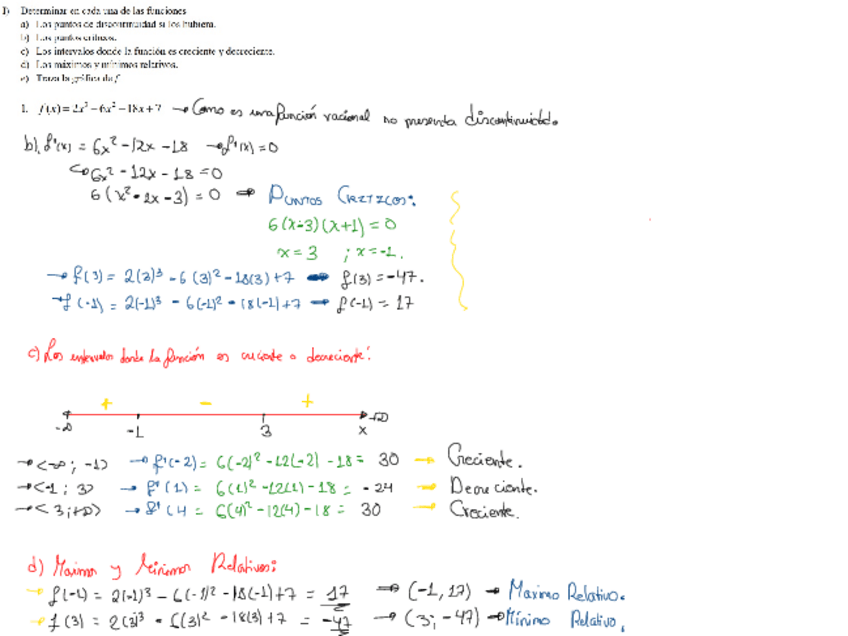 I) Determinar en cada una de las funciones
a) Los puntos de discontinuidad si los hubiera.
b) Los puntos críticos.
c) Los intervalos donde la función es creciente y decreciente.
d) Los máximos y mínimos relativos.
e) Trazar la gráfica de f
1. f(x) = 2x³ – 6x² – 18x + 7 → Como es una función racional no presenta discontinuidad.
b). f'(x) = 6x² - 12x - 18 → f'(x) = 0
6x² - 12x - 18 = 0
6(x² - 2x - 3) = 0 → Puntos Críticos:
6(x-3)(x+1) = 0
x = 3 ; x = -1.
→ f(3) = 2(3)³ - 6(3)² - 18(3) + 7 → f(3) = -47.
→ f(-1) = 2(-1)³ - 6(-1)² - 18(-1) + 7 → f(-1) = 17
c) Los intervalos donde la función es creciente o decreciente:
+ - +
-∞ -1 3 x +∞
→ <-∞; -1> → f'(-2) = 6(-2)² - 12(-2) - 18 = 30 → Creciente.
→ <-1; 3> → f'(1) = 6(1)² - 12(1) - 18 = -24 → Decreciente.
→ <3; +∞> → f'(4 = 6(4)² - 12(4) - 18 = 30 → Creciente.
d) Maximo y Minimos Relativos:
→ f(-1) = 2(-1)³ - 6(-1)² - 18(-1) + 7 = 17 → (-1, 17) → Maximo Relativo.
→ f(3) = 2(3)³ - 6(3)² - 18(3) + 7 = -47 → (3; -47) → Mínimo Relativo.